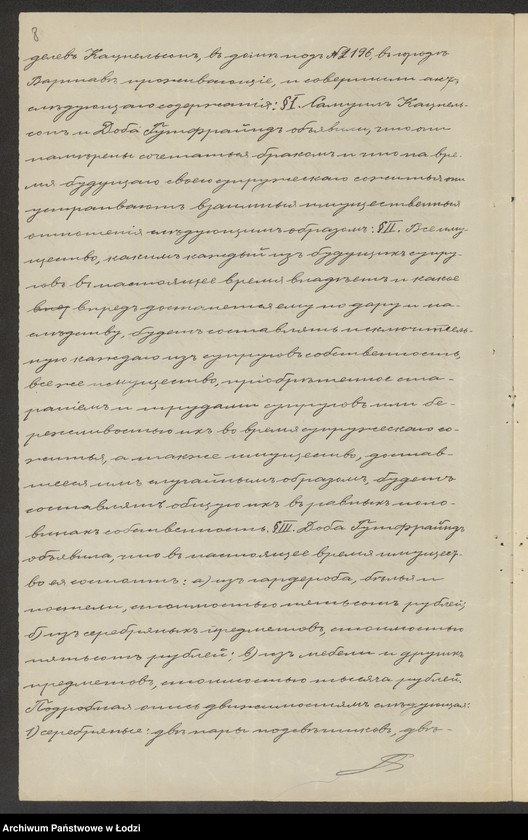 8
делевъ Кацпельсонъ, въ домѣ подъ № 196, въ городѣ
Варшавѣ проживающіе, и совершили актъ
слѣдующаго содержанія: § I. Самуилъ Кацпель-
сонъ и Доба Гутфрайндъ объявили, что они
намѣрены сочетаться бракомъ и что на вре-
мя будущаго своего супружескаго сожитія они
устраиваютъ взаимныя имущественныя
отношенія слѣдующимъ образомъ: § II. Все иму-
щество, какимъ каждый изъ будущихъ супру-
говъ въ настоящее время владѣетъ и какое
впредь достанется ему по дару и на-
слѣдству, будетъ составлять исключитель-
ную каждаго изъ супруговъ собственность,
все же имущество, пріобрѣтенное ста-
раніемъ и трудами супруговъ или бе-
режливостью ихъ во время супружескаго со-
житья, а также имущество, достав-
шееся имъ случайнымъ образомъ, будетъ
составлять общую ихъ въ равныхъ поло-
винахъ собственность. § III. Доба Гутфрайндъ
объявила, что въ настоящее время имущест-
во ея состоитъ: а) изъ гардероба, бѣлья и
постели, стоимостью пятьсотъ рублей;
б) изъ серебряныхъ предметовъ, стоимостью
пятьсотъ рублей; в) изъ мебели и другихъ
предметовъ, стоимостью тысяча рублей.
Подробная опись движимостямъ слѣдующая:
1) серебряные: двѣ пары подсвѣчниковъ, двѣ-
Archiwum Państwowe w Łodzi